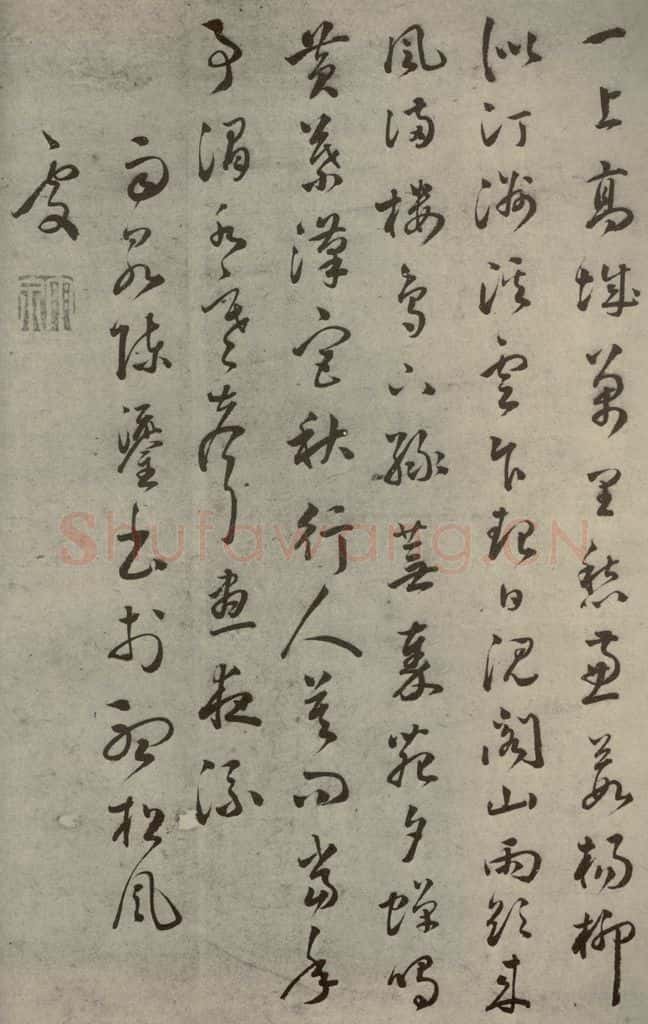 一上高城萬里愁蒹葭楊柳
似汀洲溪雲乍起日沉閣山雨欲來
風滿樓鳥下綠蕪秦苑夕蟬鳴
黃葉漢宮秋行人莫問當年
事渭水寒聲晝夜流
雨泉陳鎏書於聽松風
處
Shufawang.CN